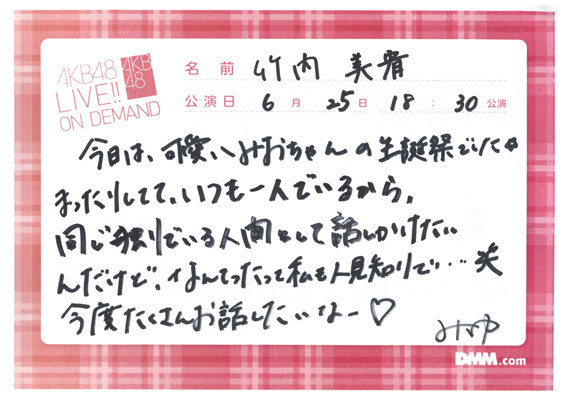 AKB48
LIVE!!
ON DEMAND
AKB
48
名前 竹内 美宥
公演日 6月 25日 18:30公演
今日は、可愛いみおちゃんの生誕祭でした☆
まったりしてて、いつも一人でいるから、
同じ独りでいる人間として話しかけたい
んだけど、なんてったって私も人見知りで…笑
今度たくさんお話したいなー♡
みゆ
DMM.com